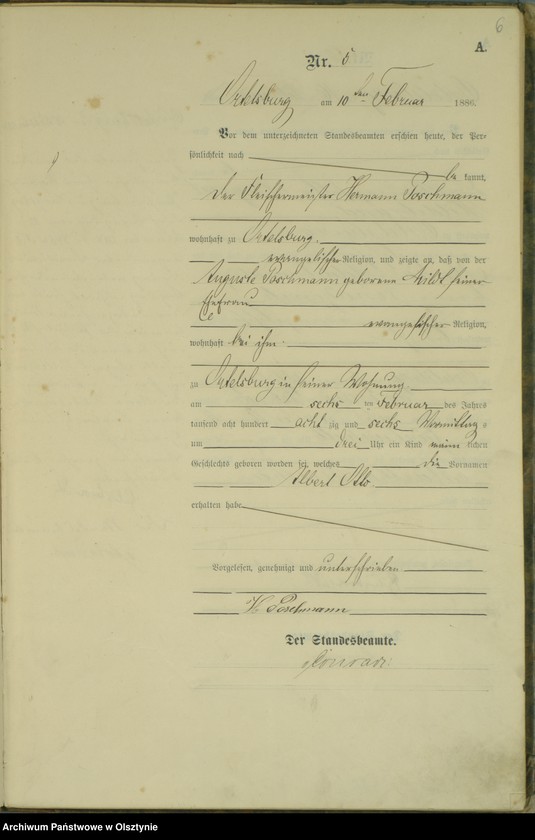 6
A.
Nr. 5
Ortelsburg am 10ten Februar 1886.
Vor dem unterzeichneten Standesbeamten erschien heute, der Per-
sönlichkeit nach
be kannt,
der Fleischermeister Hermann Poschmann
wohnhaft zu Ortelsburg,
evangelischer Religion, und zeigte an, daß von der
Auguste Poschmann geborene seiner
Ehefrau
evangelischer Religion,
wohnhaft bei ihm
zu Ortelsburg in seiner Wohnung
am sechs ten Februar des Jahres
tausend acht hundert acht zig und sechs Vormittags
um drei Uhr ein Kind männ lichen
Geschlechts geboren worden sei, welches die Vornamen
Albert Otto
erhalten habe
Vorgelesen, genehmigt und unterschrieben
H Poschmann
Der Standesbeamte.
Archiwum Państwowe w Olsztynie